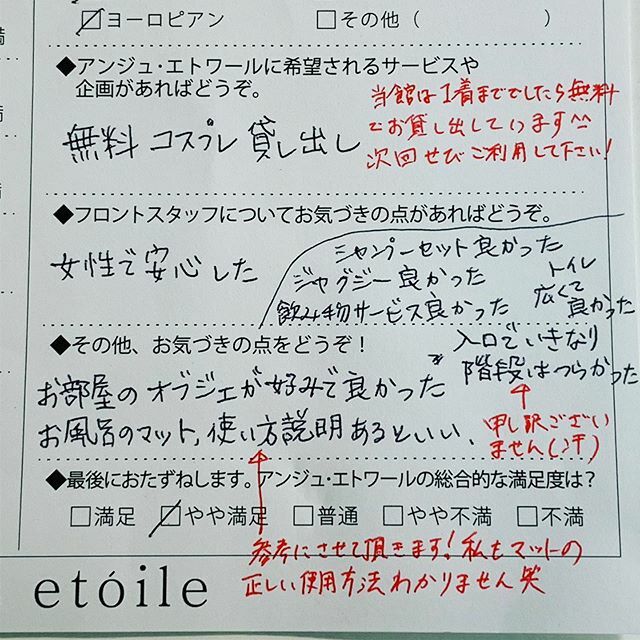 ☑ヨーロピアン □その他( )
◆アンジュ・エトワールに希望されるサービスや
企画があればどうぞ。
無料 コスプレ 貸し出し
当館は1着まででしたら無料
でお貸し出しています^^
次回ぜひご利用して下さい!
◆フロントスタッフについてお気づきの点があればどうぞ。
女性で安心した
シャンプーセット良かった
ジャグジー良かった
飲み物サービス良かった
トイレ
広くて
良かった
◆その他、お気づきの点をどうぞ!
入口でいきなり
階段はつらかった
お部屋のオブジェが好みで良かった
お風呂のマット、使い方説明あるといい、
申し訳ござい
ません(汗)
◆最後におたずねします。アンジュ・エトワールの総合的な満足度は?
□満足 ☑やや満足 □普通 □やや不満 □不満
参考にさせて頂きます!私もマットの
正しい使用方法わかりません笑
etóile